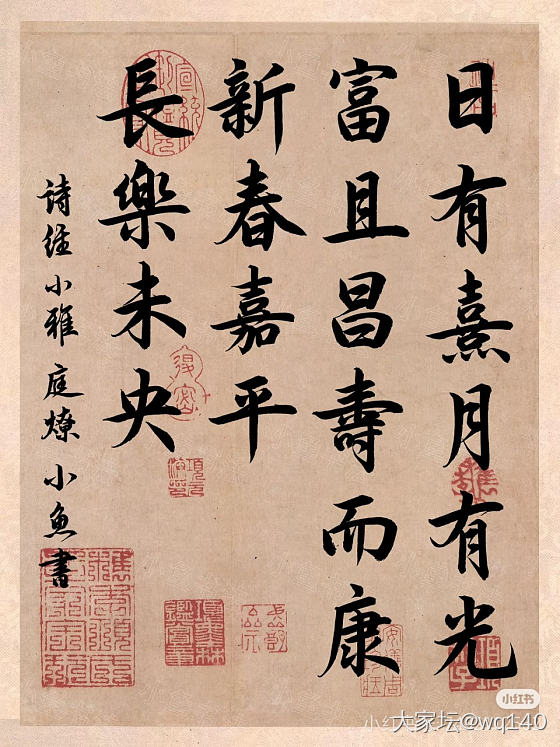 日有熹月有光
富且昌壽而康
新春嘉平
長樂未央
詩经小雅庭燎小魚書
小红书
小红书
大家坛@wq140